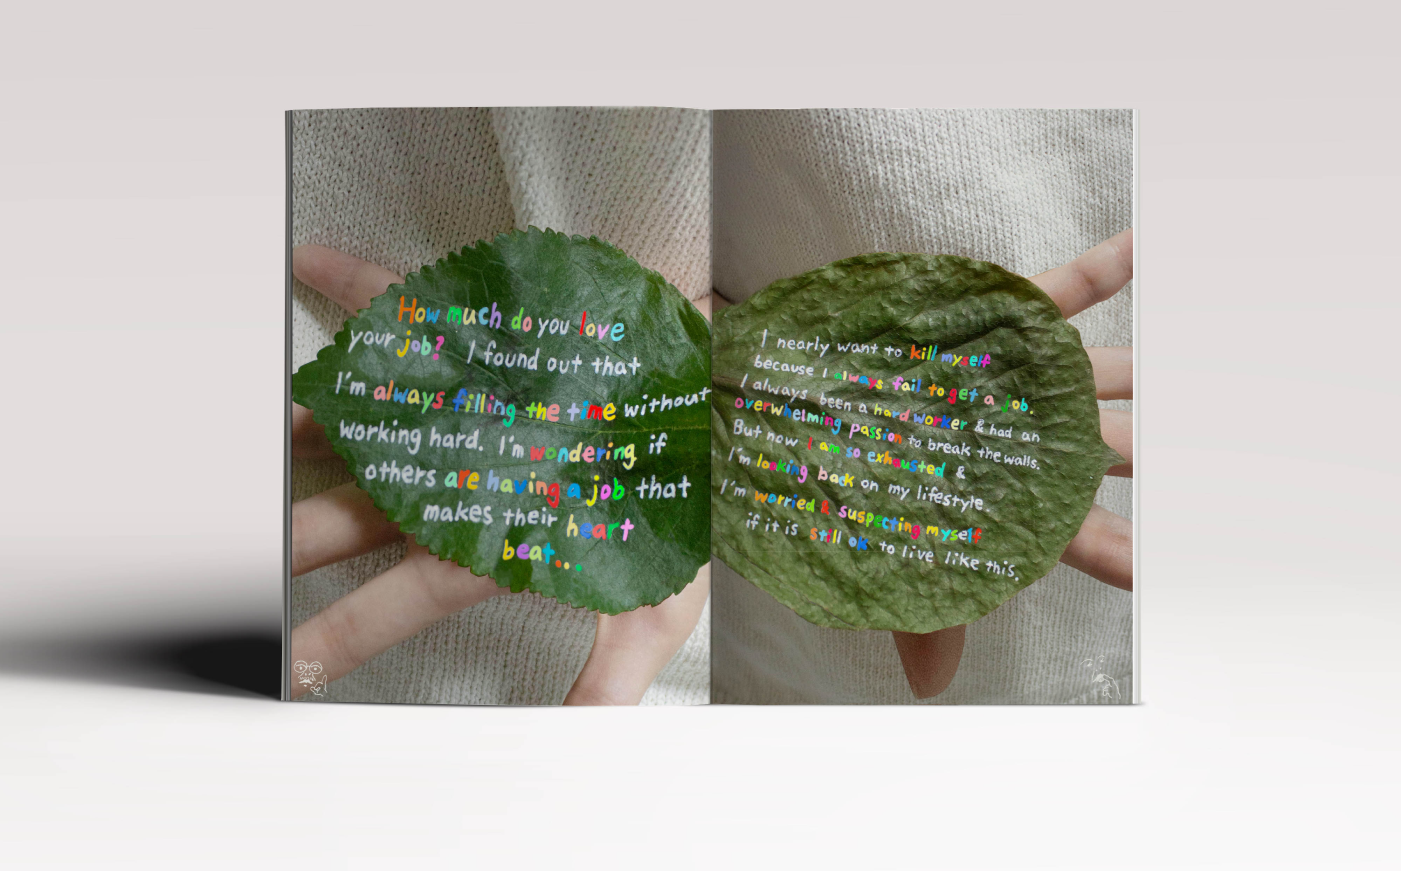 How much do you love
your job? I found out that
I'm always filling the time without
working hard. I'm wondering if
others are having a job that
makes their heart
beat...
I nearly want to kill myself
because I always fail to get a job.
I always been a hard worker & had an
overwhelming passion to break the walls.
But now I am so exhausted &
I'm looking back on my lifestyle.
I'm worried & suspecting myself
if it is still ok to live like this.